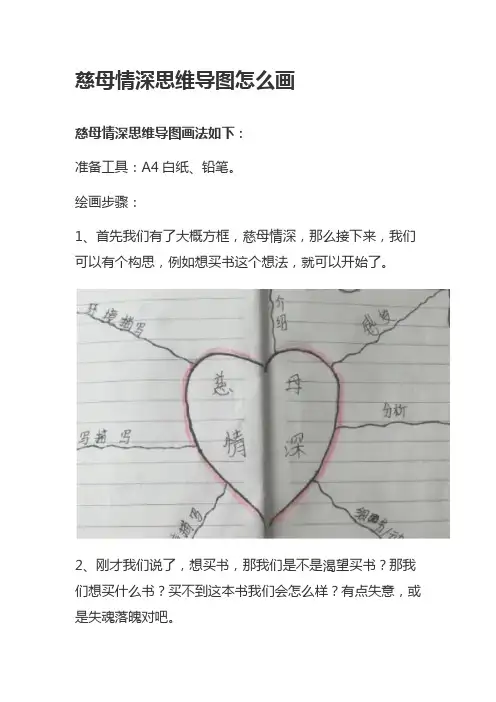 慈母情深思维导图怎么画
慈母情深思维导图画法如下：
准备工具：A4 白纸、铅笔。
绘画步骤：
1、首先我们有了大概方框，慈母情深，那么接下来，我们
可以有个构思，例如想买书这个想法，就可以开始了。
介绍
环境描写
感受
慈 母
分析
写描写
情 深
描写
2、刚才我们说了，想买书，那我们是不是渴望买书？那我
们想买什么书？买不到这本书我们会怎么样？有点失意，或
是失魂落魄对吧。